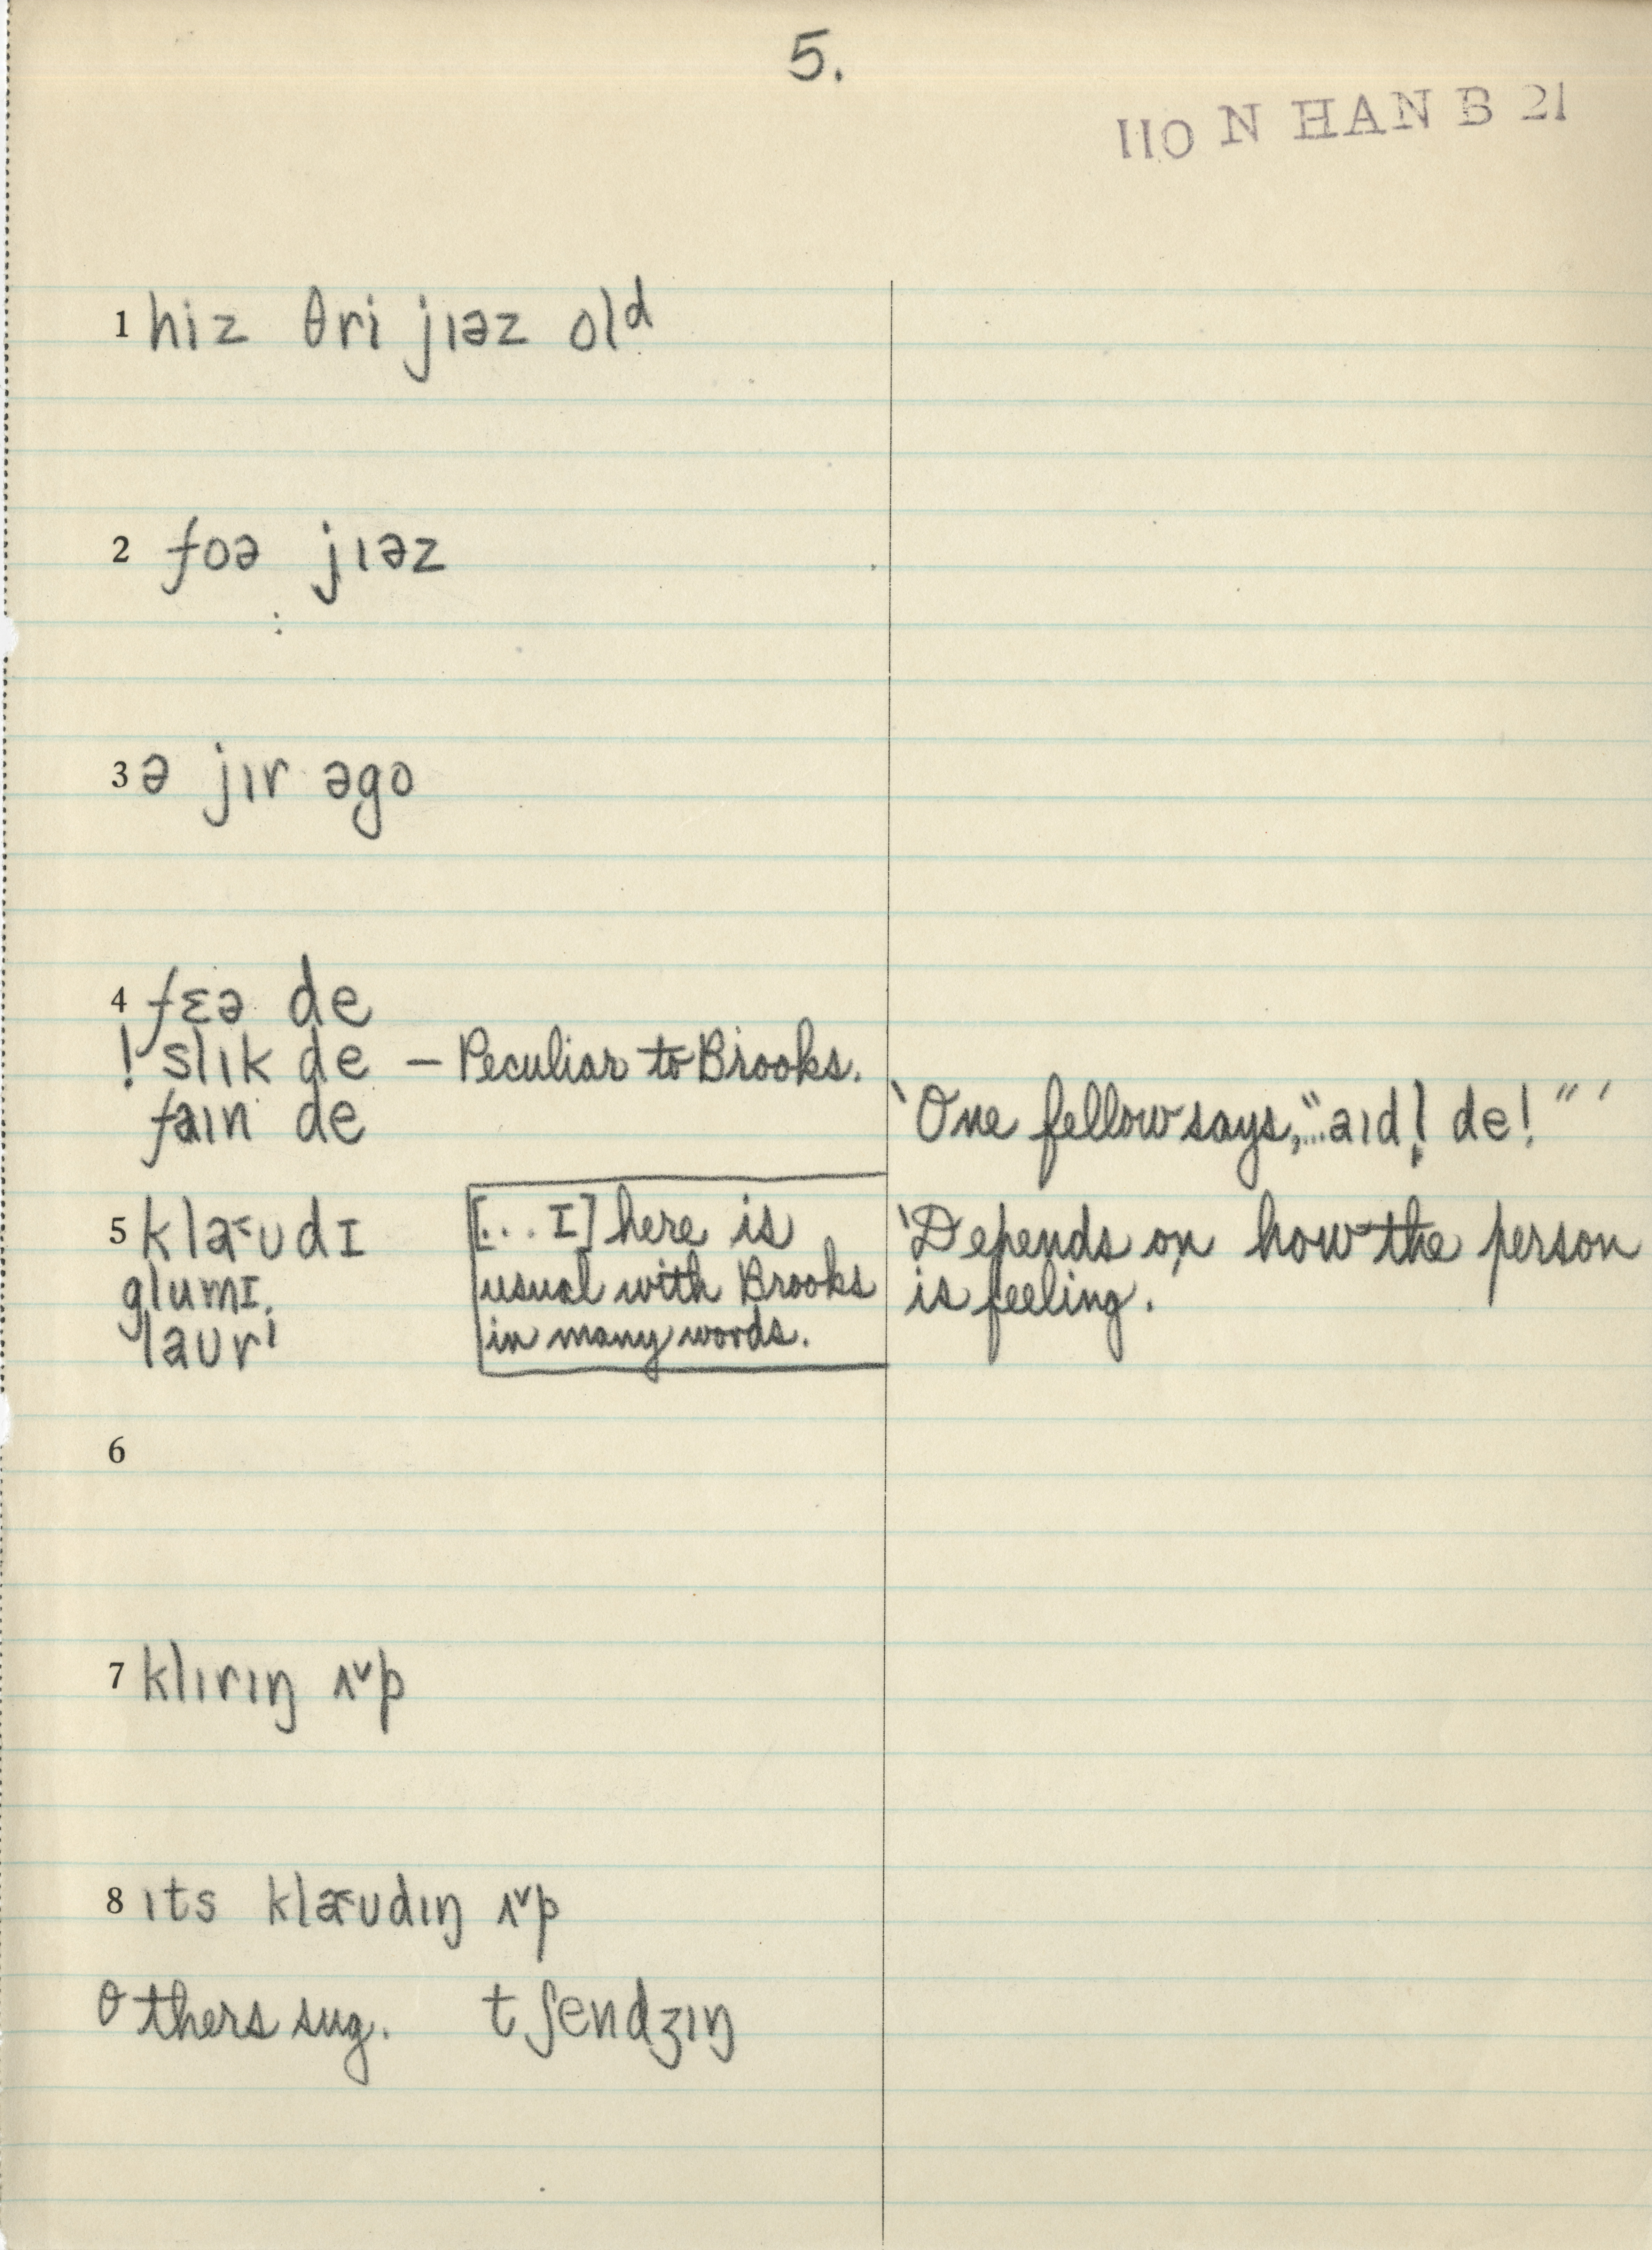 5.
110 N HAN B 21
1 hiz θri jɪəz olᵈ
2 foə jɪəz
3 ə jɪr əgo
4 fɛə de
! slɪk de – Peculiar to Brooks.
faɪn de
'One fellow says, "...aɪdl̩ de!" '
5 klæ˂ʊdɪ
glumɪ,
laʊrⁱ
[...ɪ] here is
usual with Brooks
in many words.
'Depends on how the person
is feeling.'
6
7 klɪrɪŋ ʌ˅p
8 ɪts klæ˂ʊdɪŋ ʌ˅p
Others sug. tʃendʒɪŋ